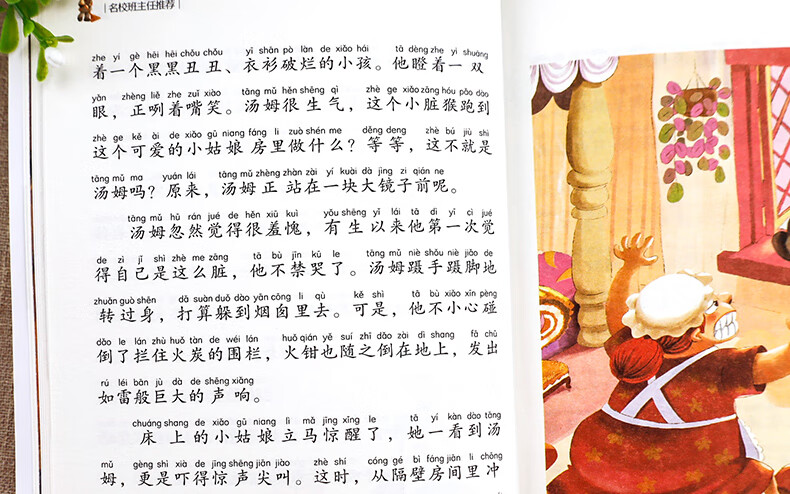 名校班主任推荐
zhe yí gè hēi hēi chǒu chǒu yī shān pò làn de xiǎo hái tā dèng zhe yì shuāng
着一个黑黑丑丑、衣衫破烂的小孩。他瞪着一双
yǎn zhèng liě zhe zuǐ xiào tāng mǔ hěn shēng qì zhè ge xiǎo zāng hóu pǎo dào
眼，正咧着嘴笑。汤姆很生气，这个小脏猴跑到
zhè ge kě ài de xiǎo gū niang fáng lǐ zuò shén me děng deng zhè bú jiù shì
这个可爱的小姑娘房里做什么？等等，这不就是
tāng mǔ ma yuán lái tāng mǔ zhèng zhàn zài yí kuài dà jìng zi qián ne
汤姆吗？原来，汤姆正站在一块大镜子前呢。
tāng mǔ hū rán jué de hěn xiū kuì yǒu shēng yǐ lái tā dì yī cì jué
汤姆忽然觉得很羞愧，有生以来他第一次觉
de zì jǐ shì zhè me zāng tā bù jīn kū le tāng mǔ niè shǒu niè jiǎo de
得自己是这么脏，他不禁哭了。汤姆蹑手蹑脚地
zhuǎn guò shēn dǎ suàn duǒ dào yān cōng li qù kě shì tā bù xiǎo xīn pèng
转过身，打算躲到烟囱里去。可是，他不小心碰
dǎo le lán zhù huǒ tàn de wéi lán huǒ qián yě suí zhī dǎo zài dì shang fā chū
倒了拦住火炭的围栏，火钳也随之倒在地上，发出
rú léi bān jù dà de shēng xiǎng
如雷般巨大的声响。
chuáng shang de xiǎo gū niang lì mǎ jīng xǐng le tā yí kàn dào tāng
床上的小姑娘立马惊醒了，她一看到汤
mǔ gèng shì xià de jīng shēng jiān jiào zhè shí cóng gé bì fáng jiān li chōng
姆，更是吓得惊声尖叫。这时，从隔壁房间里冲